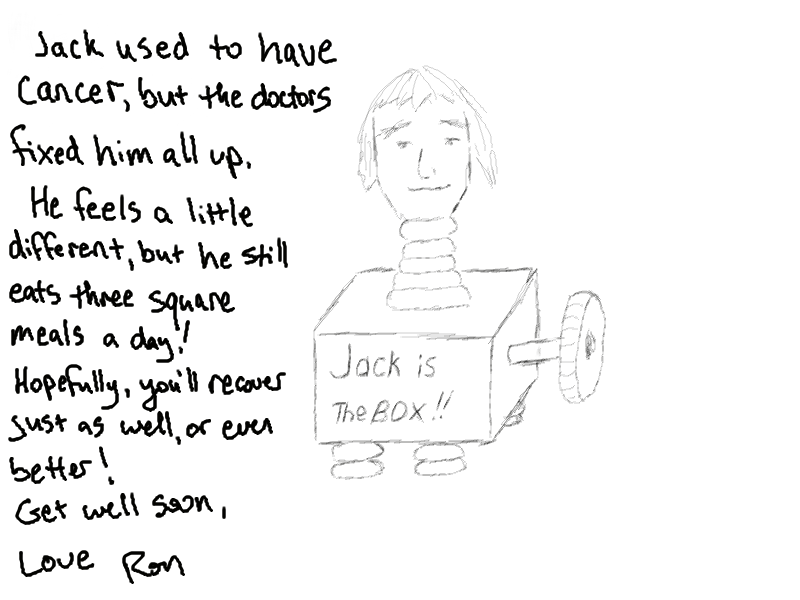 Jack used to have
Cancer, but the doctors
fixed him all up.
He feels a little
different, but he still
eats three square
meals a day!
Hopefully, you'll recover
just as well, or even
better!
Get well soon,
Love Ron
Jack is
The BOX!!